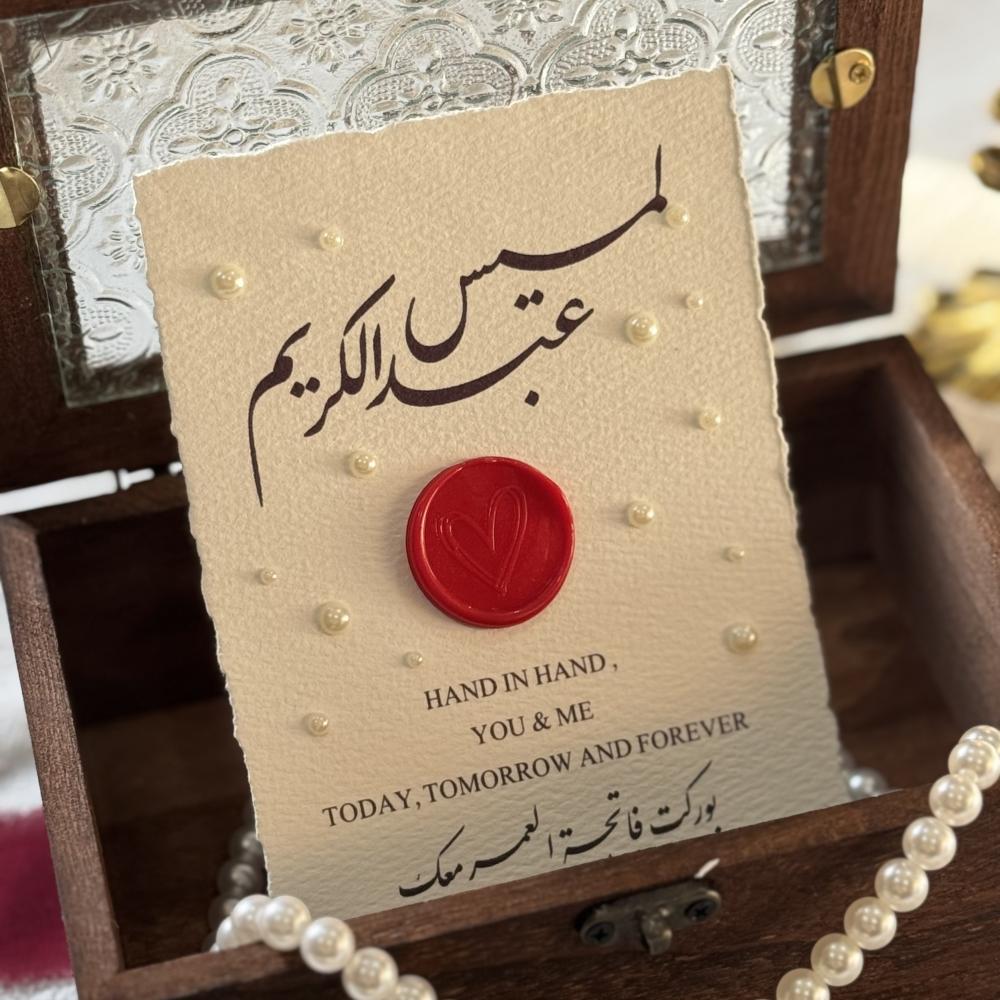 لميس
عبدالكريم
HAND IN HAND ,
YOU & ME
TODAY, TOMORROW AND FOREVER
بوركت فاتحة العمر معك